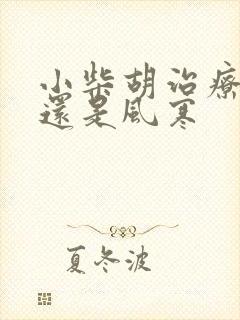 小柴胡治療
還是風寒
夏冬波